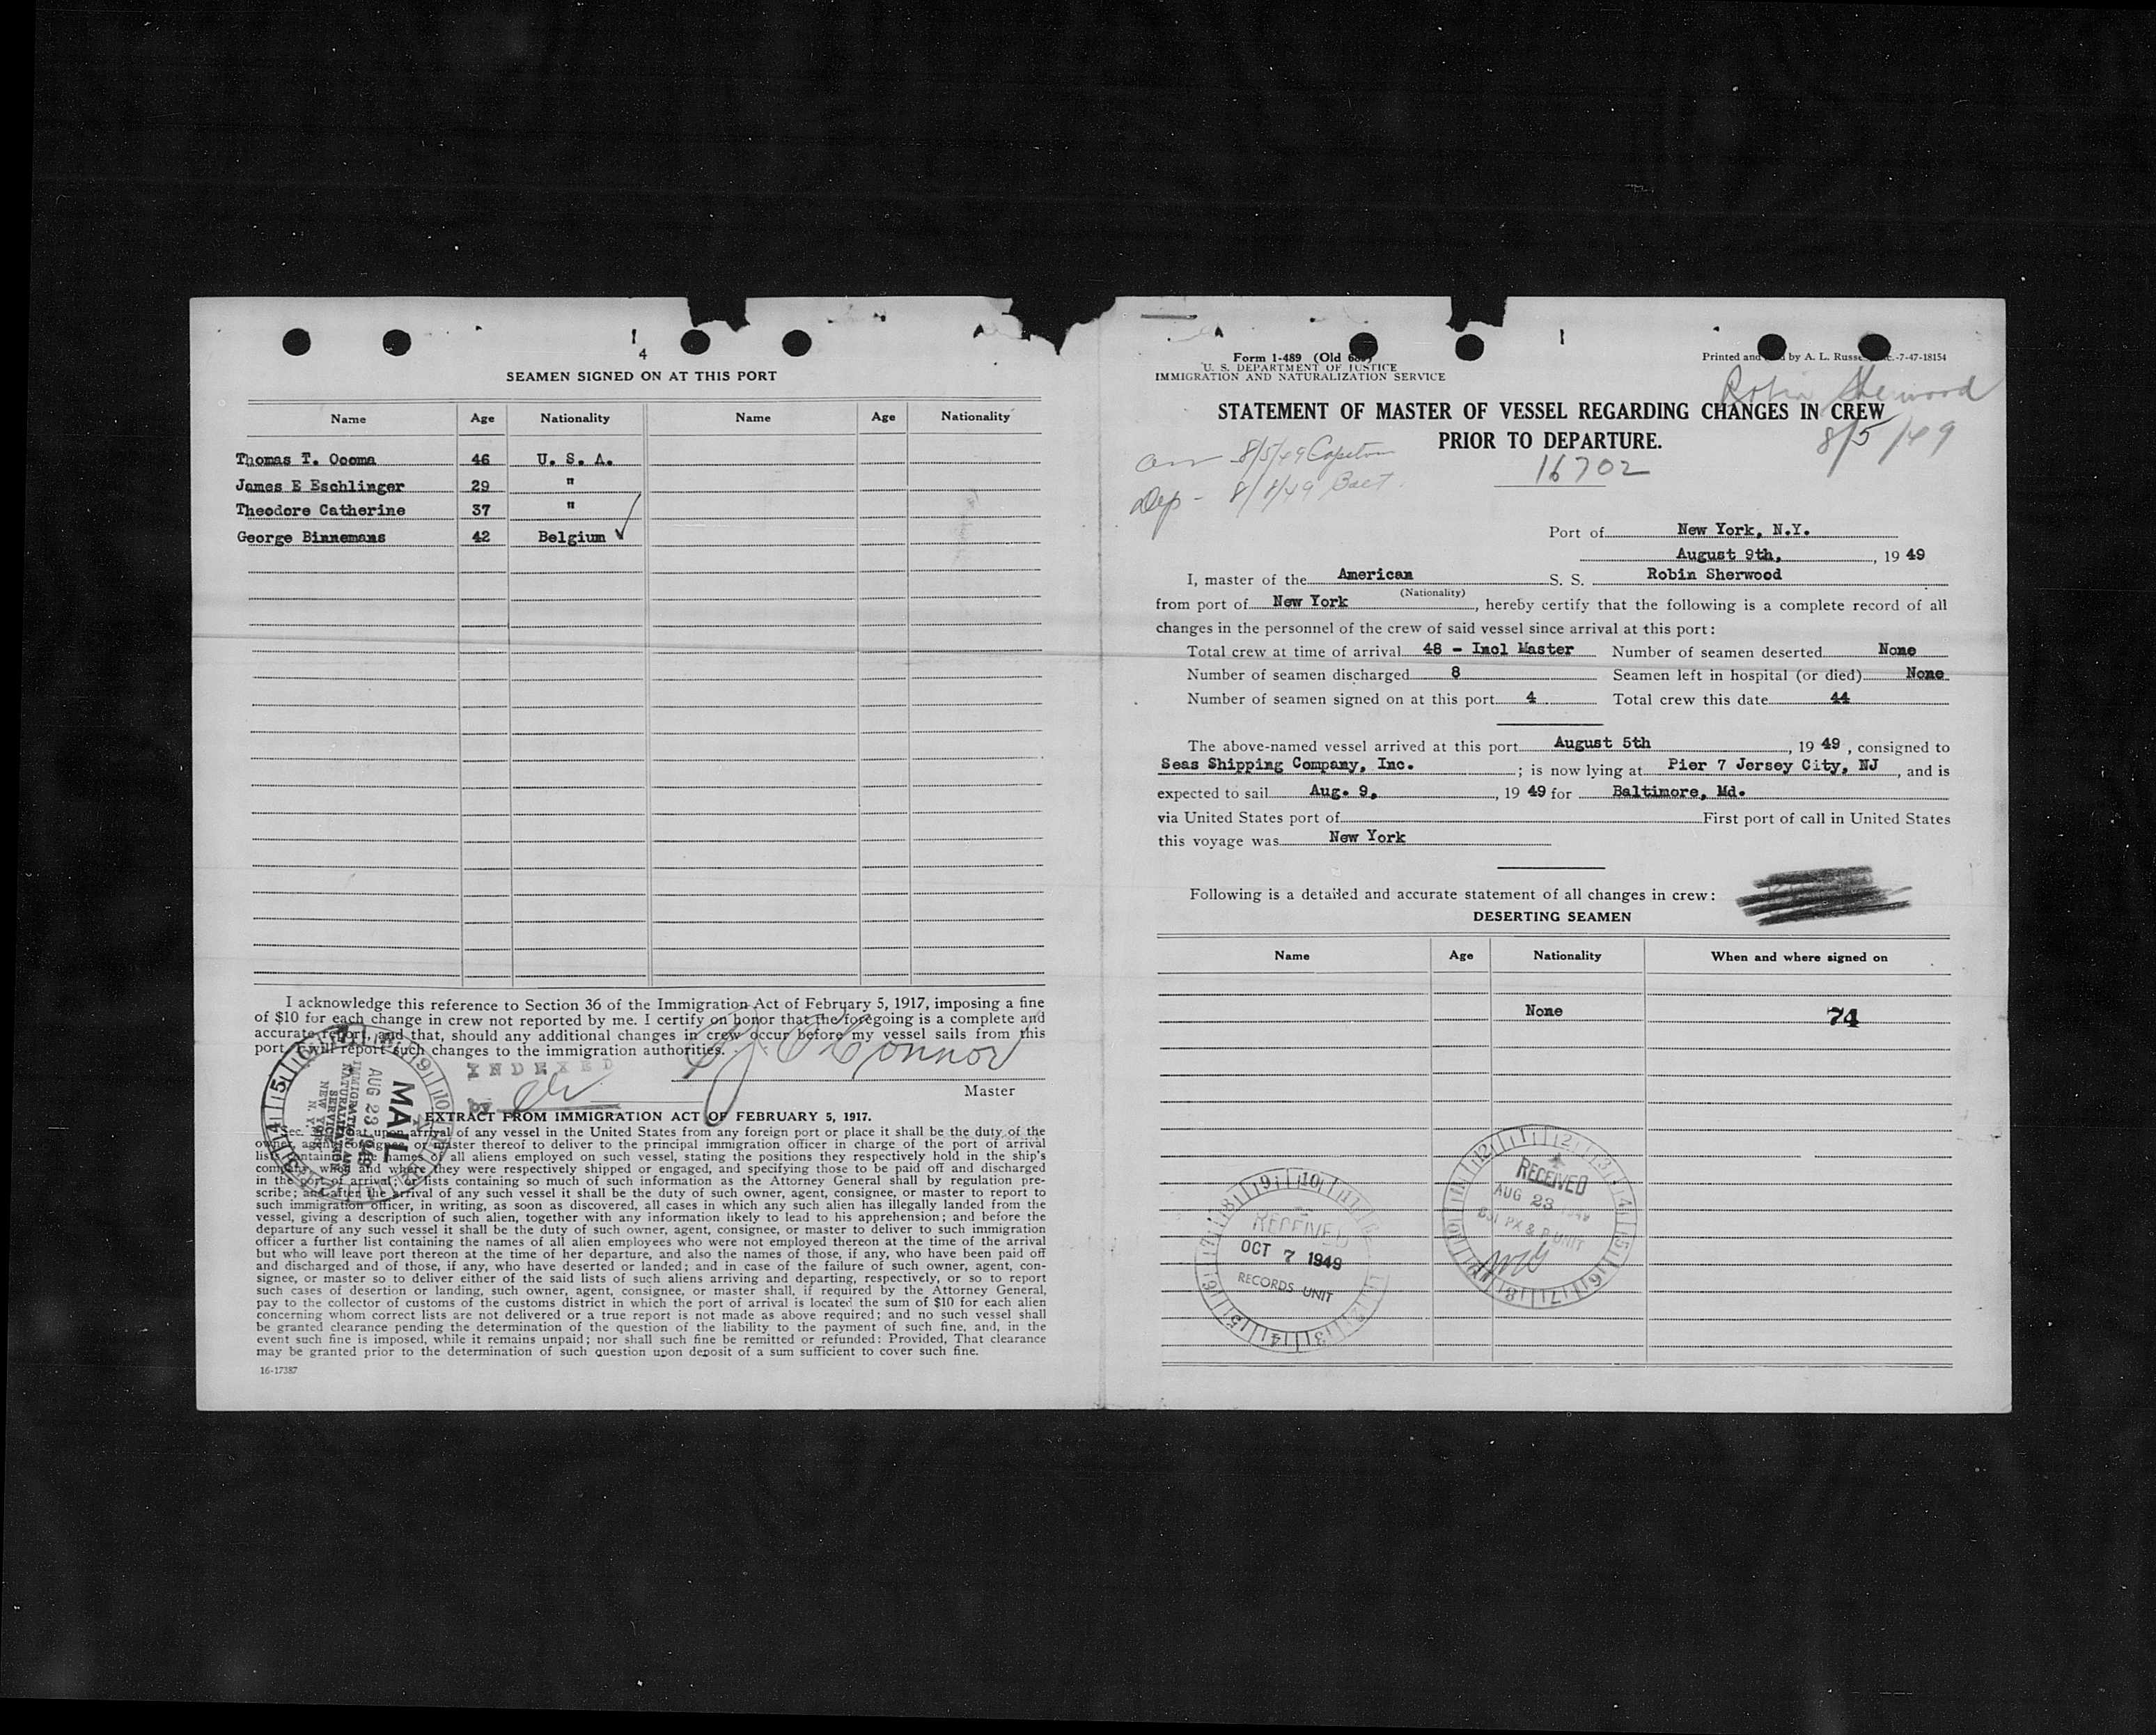 4
SEAMEN SIGNED ON AT THIS PORT
Name Age Nationality Name Age Nationality
Thomas T. Ocoma 46 U. S. A.
James E Eschlinger 29 "
Theodore Catherine 37 "
George Binnemans 42 Belgium ✓
I acknowledge this reference to Section 36 of the Immigration Act of February 5, 1917, imposing a fine
of $10 for each change in crew not reported by me. I certify on honor that the foregoing is a complete and
accurate report, and that, should any additional changes in crew occur before my vessel sails from this
port I will report such changes to the immigration authorities.
O'Connor
INDEXED
by
Master
MAIL
AUG 23 1949
IMMIGRATION AND
NATURALIZATION
SERVICE
NEW YORK
N. Y.
EXTRACT FROM IMMIGRATION ACT OF FEBRUARY 5, 1917.
Sec. upon arrival of any vessel in the United States from any foreign port or place it shall be the duty of the
owner, agent, or master thereof to deliver to the principal immigration officer in charge of the port of arrival
lists containing names of all aliens employed on such vessel, stating the positions they respectively hold in the ship's
company, when and where they were respectively shipped or engaged, and specifying those to be paid off and discharged
in the port of arrival; or lists containing so much of such information as the Attorney General shall by regulation pre-
scribe; and after the arrival of any such vessel it shall be the duty of such owner, agent, consignee, or master to report to
such immigration officer, in writing, as soon as discovered, all cases in which any such alien has illegally landed from the
vessel, giving a description of such alien, together with any information likely to lead to his apprehension; and before the
departure of any such vessel it shall be the duty of such owner, agent, consignee, or master to deliver to such immigration
officer a further list containing the names of all alien employees who were not employed thereon at the time of the arrival
but who will leave port thereon at the time of her departure, and also the names of those, if any, who have been paid off
and discharged and of those, if any, who have deserted or landed; and in case of the failure of such owner, agent, con-
signee, or master so to deliver either of the said lists of such aliens arriving and departing, respectively, or so to report
such cases of desertion or landing, such owner, agent, consignee, or master shall, if required by the Attorney General,
pay to the collector of customs of the customs district in which the port of arrival is located the sum of $10 for each alien
concerning whom correct lists are not delivered or a true report is not made as above required; and no such vessel shall
be granted clearance pending the determination of the question of the liability to the payment of such fine, and, in the
event such fine is imposed, while it remains unpaid; nor shall such fine be remitted or refunded: Provided, That clearance
may be granted prior to the determination of such question upon deposit of a sum sufficient to cover such fine.
16-17387
Form 1-489 (Old
U. S. DEPARTMENT OF JUSTICE
IMMIGRATION AND NATURALIZATION SERVICE
Printed and by A. L. Russe -7-47-18154
Robin Sherwood
8/5/49
STATEMENT OF MASTER OF VESSEL REGARDING CHANGES IN CREW
PRIOR TO DEPARTURE.
arr 8/5/49 Capetown
Dep - 8/8/49 Balt.
16702
Port of New York, N.Y.
August 9th, , 19 49
I, master of the American S. S. Robin Sherwood
(Nationality)
from port of New York , hereby certify that the following is a complete record of all
changes in the personnel of the crew of said vessel since arrival at this port:
Total crew at time of arrival 48 - Incl Master Number of seamen deserted None
Number of seamen discharged 8 Seamen left in hospital (or died) None
Number of seamen signed on at this port 4 Total crew this date 44
The above-named vessel arrived at this port August 5th , 19 49 , consigned to
Seas Shipping Company, Inc. ; is now lying at Pier 7 Jersey City, NJ , and is
expected to sail Aug. 9, , 19 49 for Baltimore, Md.
via United States port of First port of call in United States
this voyage was New York
Following is a detailed and accurate statement of all changes in crew:
DESERTING SEAMEN
Name Age Nationality When and where signed on
None 74
RECEIVED
AUG 23 1949
RECEIVED
OCT 7 1949
RECORDS UNIT